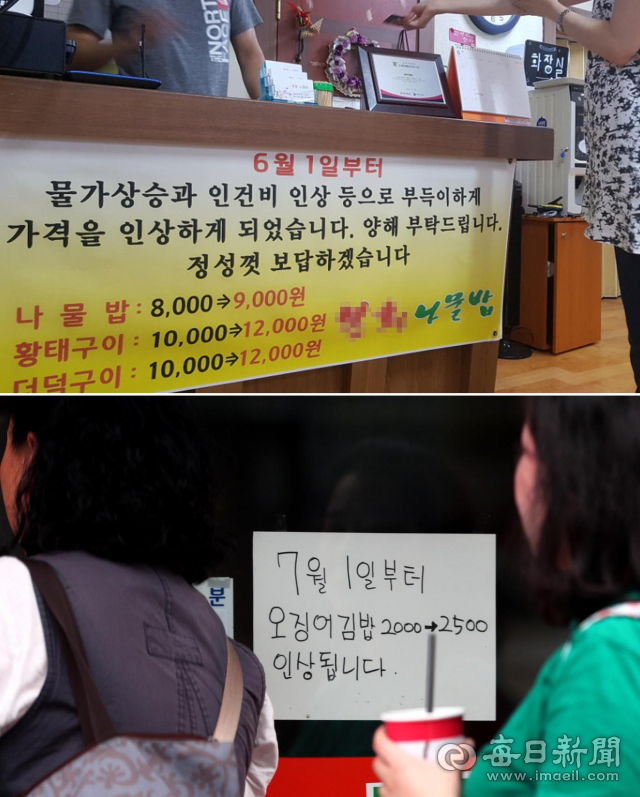 NORTH
화장실
6월 1일부터
물가상승과 인건비 인상 등으로 부득이하게
가격을 인상하게 되었습니다. 양해 부탁드립니다.
정성껏 보답하겠습니다
나 물 밥 : 8,000➔9,000원
황태구이 : 10,000➔12,000원
더덕구이 : 10,000➔12,000원
나물밥
분
7월 1일부터
오징어김밥 2000→2500
인상됩니다.
每日新聞
www.imaeil.com